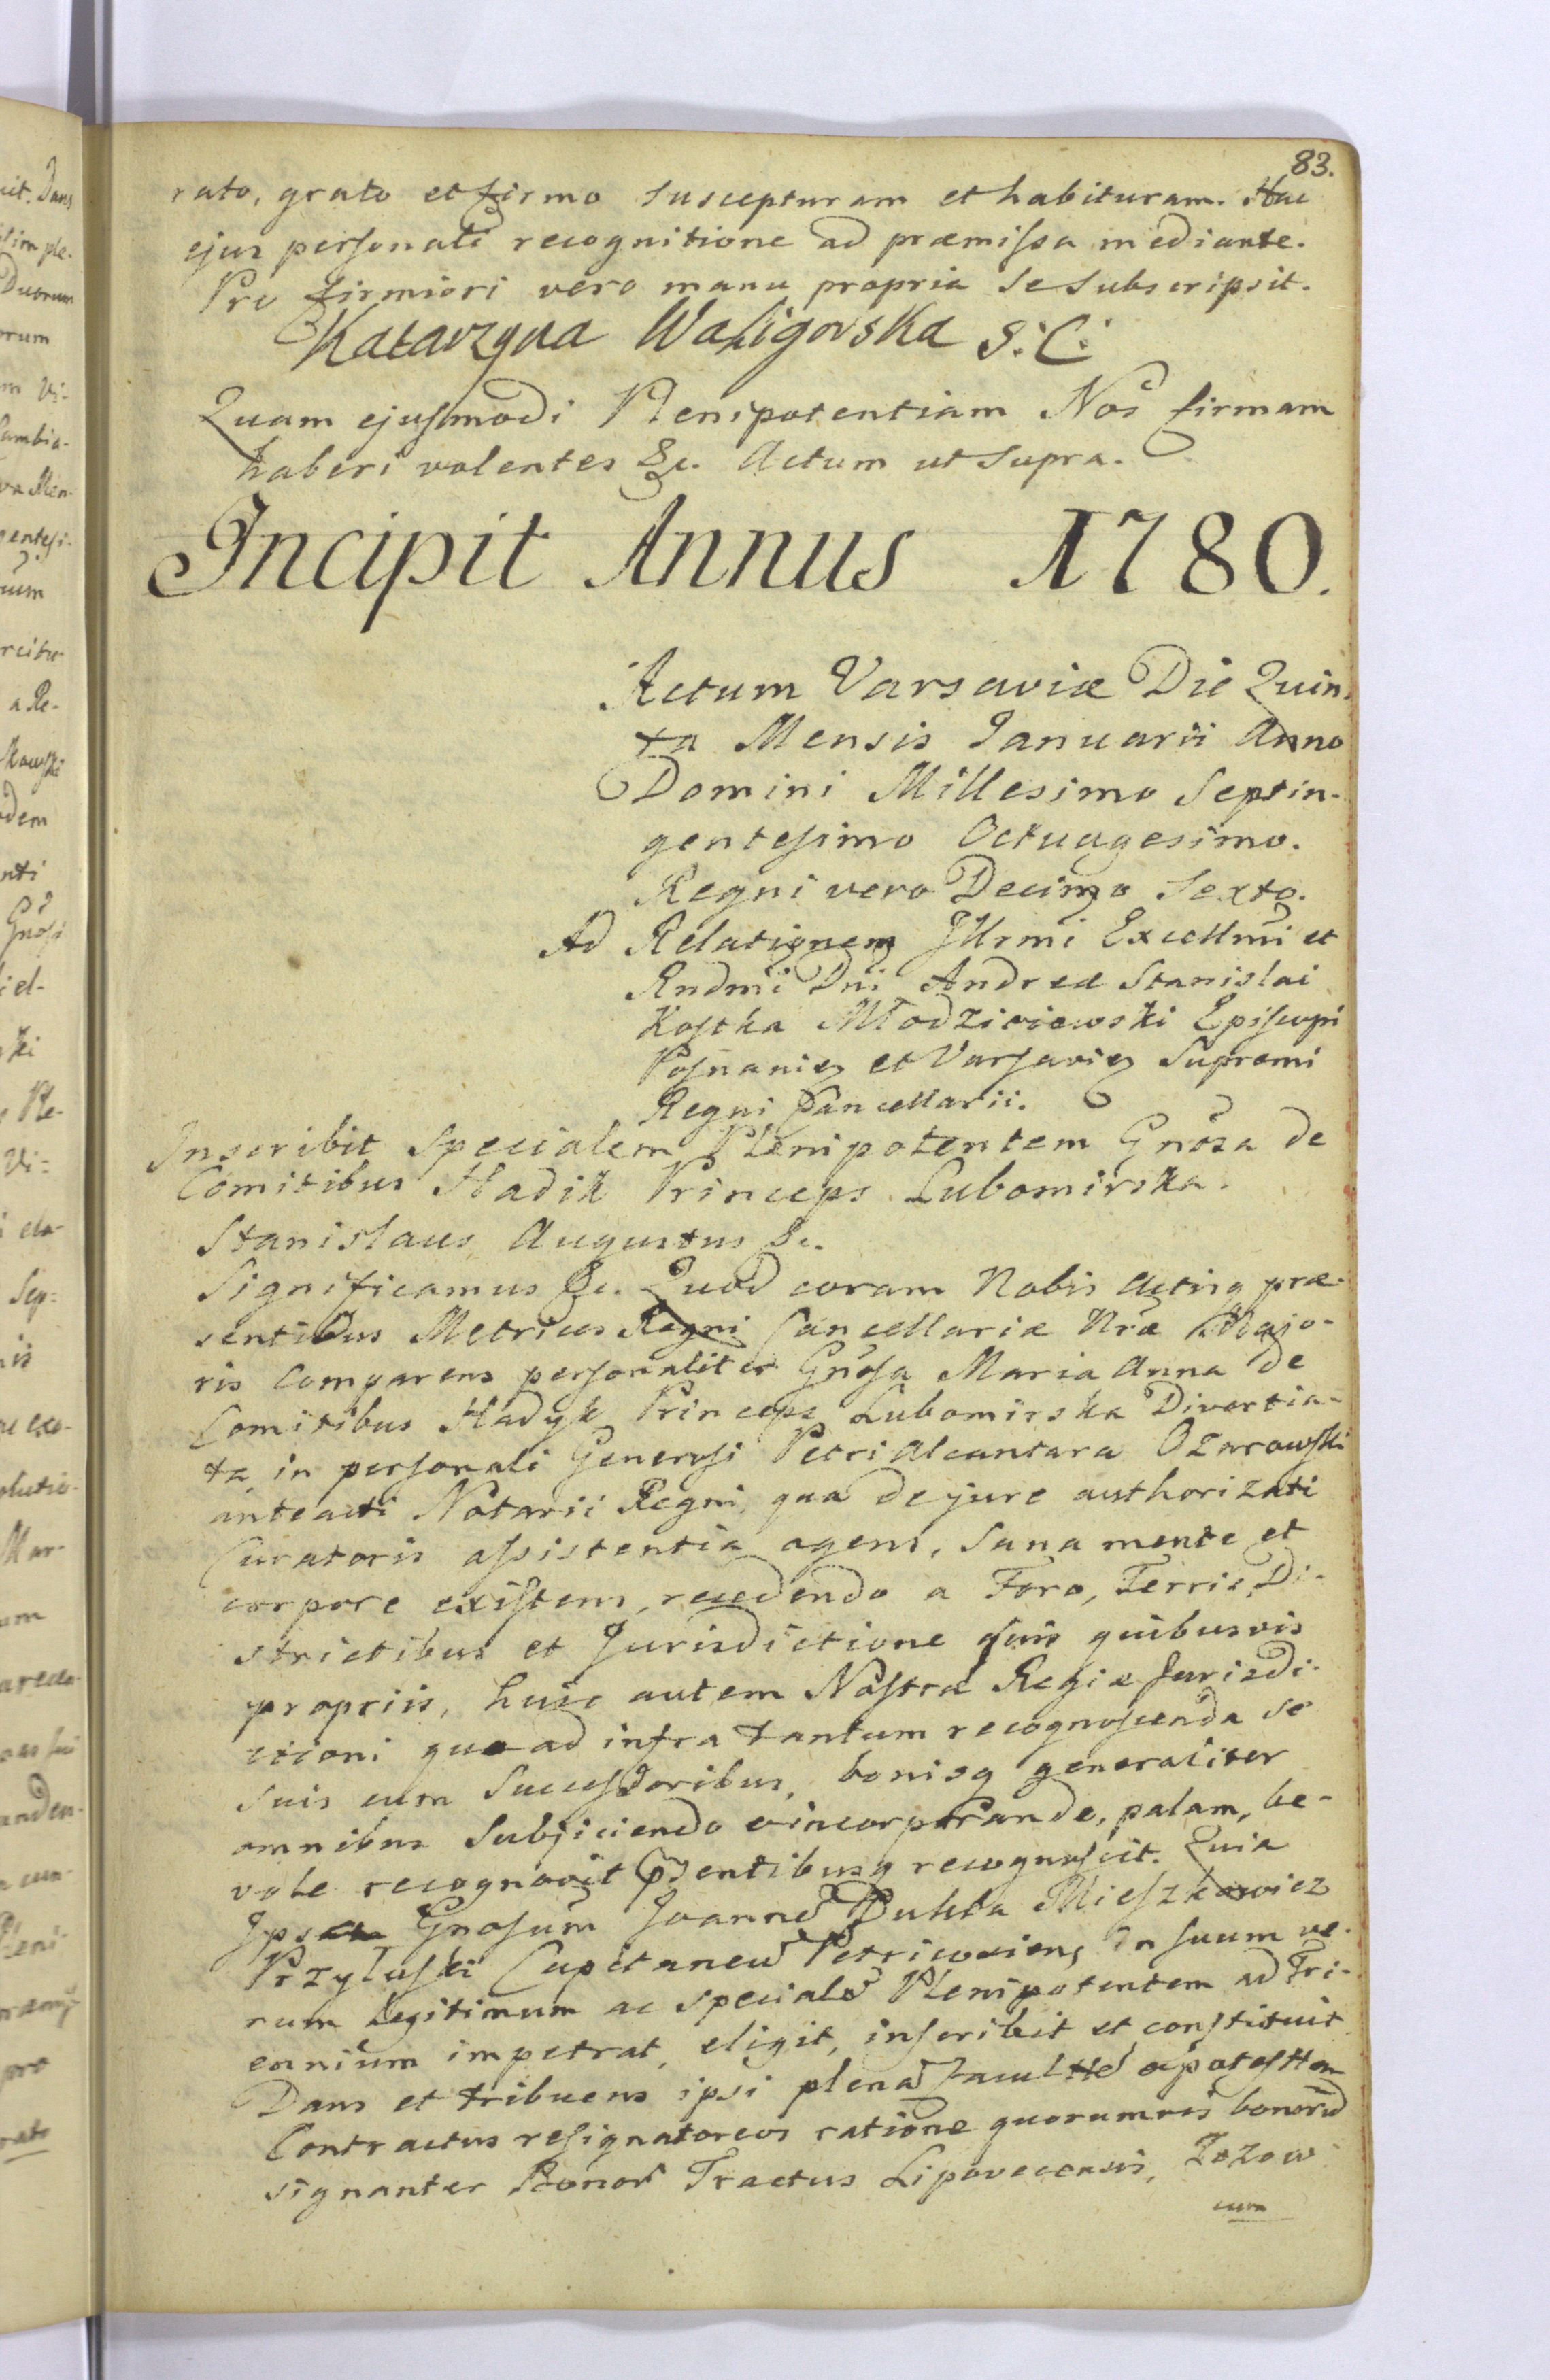 83.
rato, grato et firmo suscepturam et habituram. Hac
ejus personali recognitione ad præmissa mediante.
Pro firmiori vero manu propria se subscripsit.
Katarzyna Waligorska S. C.
Quam ejusmodi Plenipotentiam Nos firmam
haberi volentes &c. Actum ut supra.
Incipit Annus 1780.
Actum Varsaviæ Die Quin-
ta Mensis Januarii Anno
Domini Millesimo Septin-
gentesimo Octuagesimo.
Regni vero Decimo Sexto.
Ad Relationem Illrmi Excellmi et
Rndmi Dni Andreæ Stanislai
Kostka Młodzieiewski Episcopi
Posnanię et Varsavię Supremi
Regni Cancellarii.
Inscribit Specialem Plenipotentem Gnosa de
Comitibus Hadik Princeps Lubomirska.
Stanislaus Augustus &c.
Significamus &c. Quod coram Nobis Actisq præ-
sentibus Metrices Regni Cancellariæ Nræ Majo-
ris Comparens personaliter Gnosa Maria Anna de
Comitibus Hadyk Princeps Lubomirska Divortia-
ta in personali Generosi Petri Alcantara Ożarowski
anteacti Notarii Regni, qua de jure authorizati
Curatoris assistentia agens, sana mente et
corpore existens, recedendo a Foro, Terris, Di-
strictibus et Jurisdictione suis quibusvis
propriis, huic autem Nostræ Regiæ Jurisdi-
ctioni quoad infra tantum recognoscenda se
suis cum Successoribus, bonisq generaliter
omnibus Subjiciendo et incorporando, palam, be-
vole recognovit pςentibusq recognoscit. Quia
Ipsa Gnosum Joannem Duklа Mieszkowicz
Przyłuski Capitaneum Petricovien, in suum ve-
rum Legitimum ac specialem Plenipotentem ad Tri-
ennium impetrat, eligit, inscribit et constituit
Dans et tribuens ipsi plenam facultem ac potestem
Contractus resignatoreos ratione quorumvis bonorum
signanter Bonor Tractus Lipovecensis,
cum